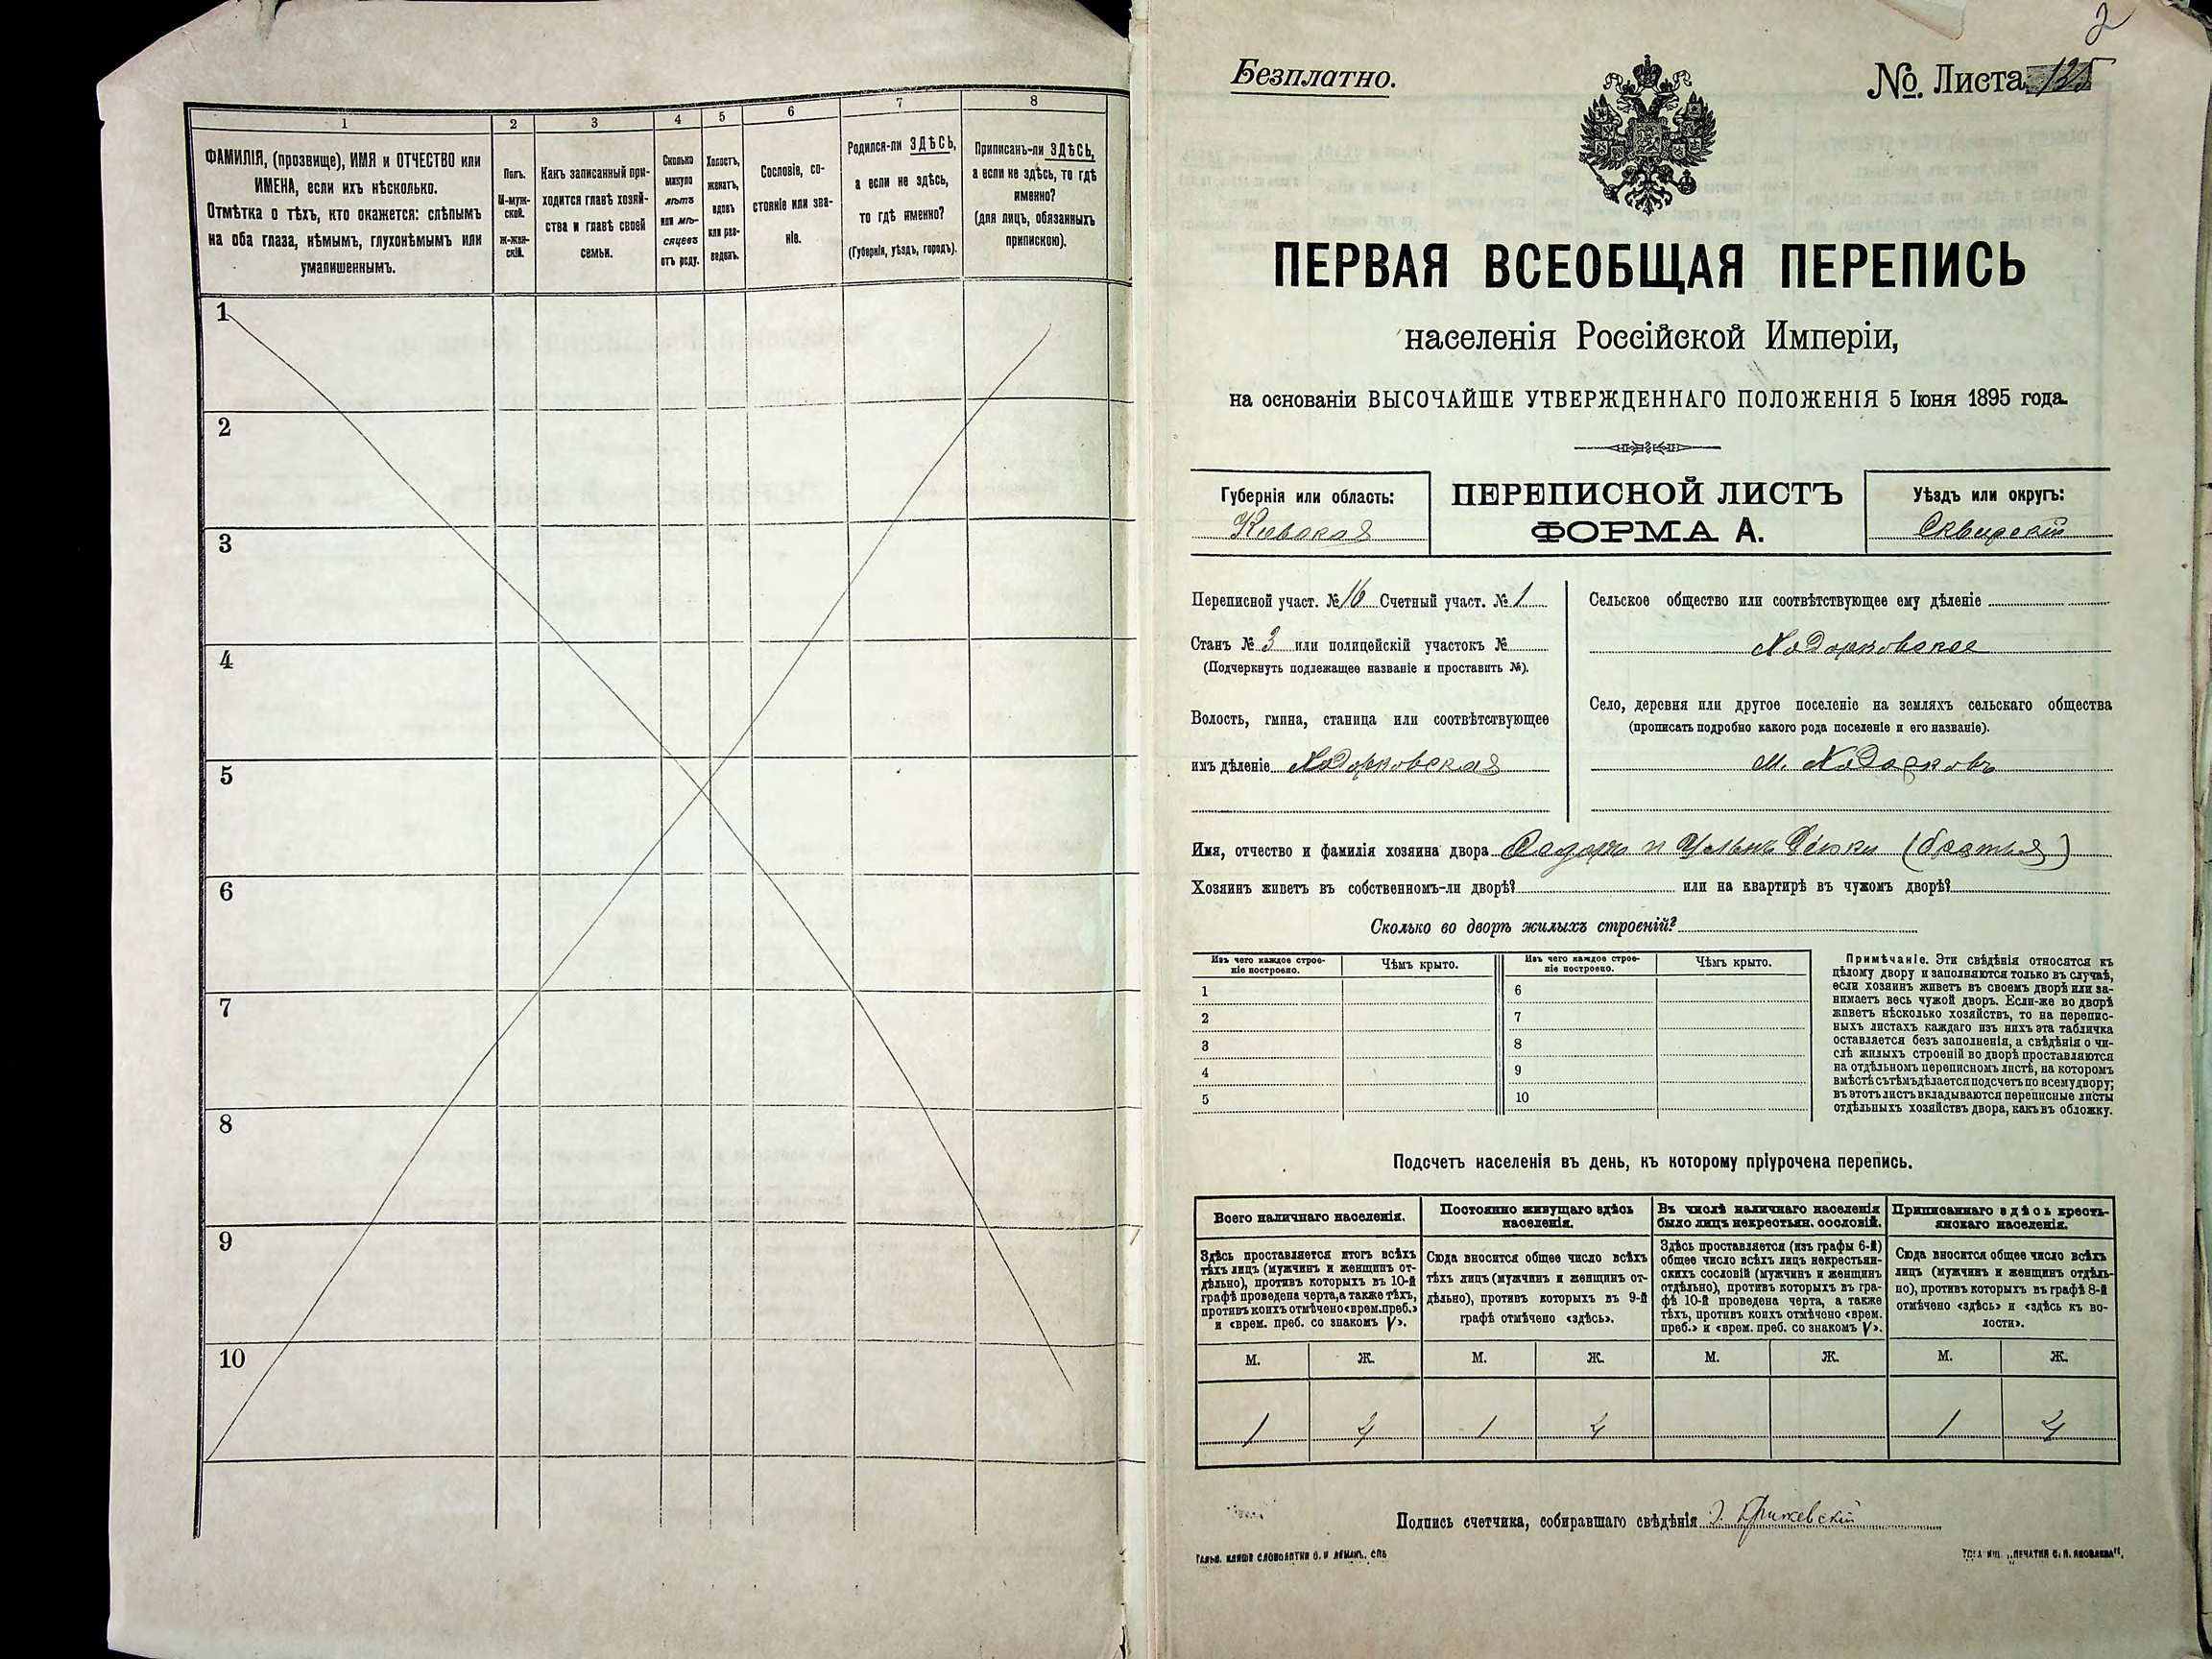 1
2
3
4
5
6
7
8
ФАМИЛІЯ, (прозвище), ИМЯ и ОТЧЕСТВО или
ИМЕНА, если ихъ нѣсколько.
Отмѣтка о тѣхъ, кто окажется: слѣпымъ
на оба глаза, нѣмымъ, глухонѣмымъ или
умалишеннымъ.
Полъ.
М-муж-
ской.
Ж-жен-
скій.
Какъ записанный при-
ходится главѣ хозяй-
ства и главѣ своей
семьи.
Сколько
минуло
лѣтъ
или мѣ-
сяцевъ
отъ роду.
Холостъ,
женатъ,
вдовъ
или раз-
веденъ.
Сословіе, со-
стояніе или зва-
ніе.
Родился-ли ЗДѢСЬ,
а если не здѣсь,
то гдѣ именно?
(Губернія, уѣздъ, городъ).
Приписанъ-ли ЗДѢСЬ,
а если не здѣсь, то гдѣ
именно?
(для лицъ, обязанныхъ
припискою).
1
2
3
4
5
6
7
8
9
10
2
Безплатно.
№. Листа 125
ПЕРВАЯ ВСЕОБЩАЯ ПЕРЕПИСЬ
населенія Россійской Имперіи,
на основаніи ВЫСОЧАЙШЕ УТВЕРЖДЕННАГО ПОЛОЖЕНІЯ 5 Іюня 1895 года.
Губернія или область:
Кіевская
ПЕРЕПИСНОЙ ЛИСТЪ
ФОРМА А.
Уѣздъ или округъ:
Сквирскій
Переписной участ. № 16 Счетный участ. № 1
Станъ № 3 или полицейскій участокъ №
(Подчеркнуть подлежащее названіе и проставить №).
Волость, гмина, станица или соотвѣтствующее
имъ дѣленіе Ходорковская
Сельское общество или соотвѣтствующее ему дѣленіе
Ходорковское
Село, деревня или другое поселеніе на земляхъ сельскаго общества
(прописать подробно какого рода поселеніе и его названіе).
м. Ходорковъ
Имя, отчество и фамилія хозяина двора и (братья)
Хозяинъ живетъ въ собственномъ-ли дворѣ? или на квартирѣ въ чужомъ дворѣ?
Сколько во дворѣ жилыхъ строеній?
Изъ чего каждое строе-
ніе построено.
Чѣмъ крыто.
Изъ чего каждое строе-
ніе построено.
Чѣмъ крыто.
1
2
3
4
5
6
7
8
9
10
Примѣчаніе. Эти свѣдѣнія относятся къ
цѣлому двору и заполняются только въ случаѣ,
если хозяинъ живетъ въ своемъ дворѣ или за-
нимаетъ весь чужой дворъ. Если-же во дворѣ
живетъ нѣсколько хозяйствъ, то на перепис-
ныхъ листахъ каждаго изъ нихъ эта табличка
оставляется безъ заполненія, а свѣдѣнія о чи-
слѣ жилыхъ строеній во дворѣ проставляются
на отдѣльномъ переписномъ листѣ, на которомъ
вмѣстѣ съ тѣмъ дѣлается подсчетъ по всему двору;
въ этотъ листъ вкладываются переписные листы
отдѣльныхъ хозяйствъ двора, какъ въ обложку.
Подсчетъ населенія въ день, къ которому пріурочена перепись.
Всего наличнаго населенія.
Здѣсь проставляется итогъ всѣхъ
тѣхъ лицъ (мужчинъ и женщинъ от-
дѣльно), противъ которыхъ въ 10-й
графѣ проведена черта, а также тѣхъ,
противъ коихъ отмѣчено «врем. преб.»
и «врем. преб. со знакомъ V».
Постоянно живущаго здѣсь
населенія.
Сюда вносится общее число всѣхъ
тѣхъ лицъ (мужчинъ и женщинъ от-
дѣльно), противъ которыхъ въ 9-й
графѣ отмѣчено «здѣсь».
Въ числѣ наличнаго населенія
было лицъ некрестьян. сословій.
Здѣсь проставляется (изъ графы 6-й)
общее число всѣхъ лицъ некрестьян-
скихъ сословій (мужчинъ и женщинъ
отдѣльно), противъ которыхъ въ гра-
фѣ 10-й проведена черта, а также
тѣхъ, противъ коихъ отмѣчено «врем.
преб.» и «врем. преб. со знакомъ V».
Приписаннаго здѣсь кресть-
янскаго населенія.
Сюда вносится общее число всѣхъ
лицъ (мужчинъ и женщинъ отдѣль-
но), противъ которыхъ въ графѣ 8-й
отмѣчено «здѣсь» и «здѣсь къ во-
лости».
М. Ж. М. Ж. М. Ж. М. Ж.
1 4 1 4 1 4
Подпись счетчика, собиравшаго свѣдѣнія